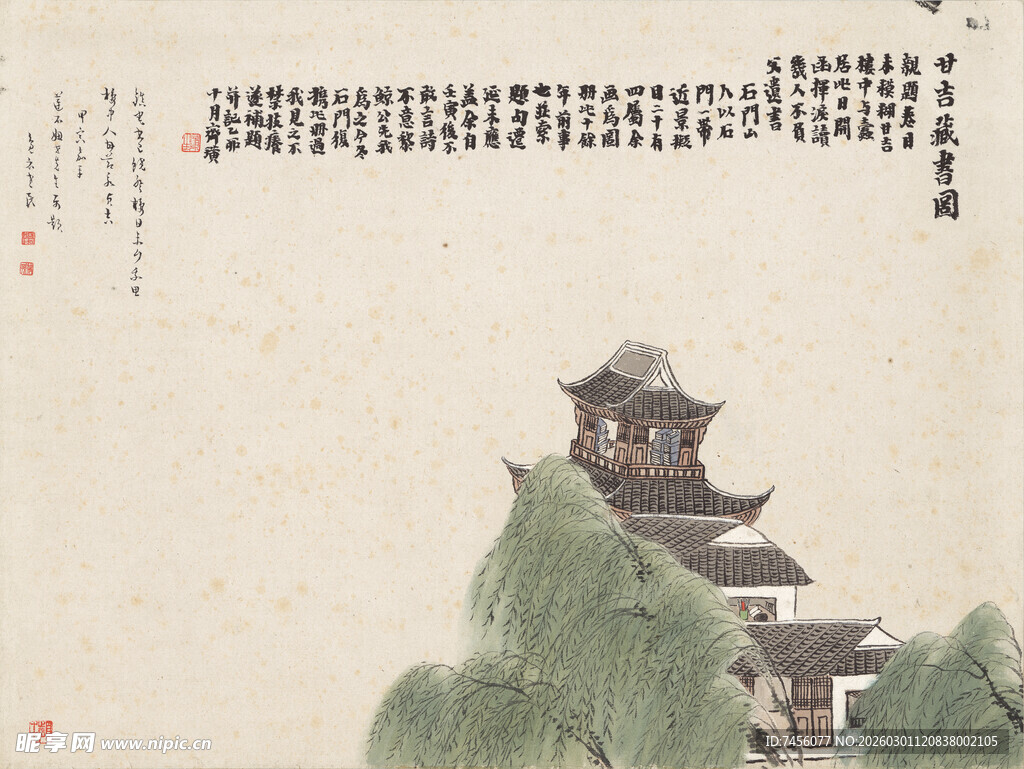 甘吉藏書圖
親題卷目
未模糊甘吉
樓中与蠹
居此日開
函揮淚讀
幾人不負
父遺言
石門山
人以石
門一帶
近景擬
目二十有
四屬余
画為圖
冊此十餘
年前事
也茲索
題句遷
延未應
蓋余自
壬寅後不
敢言詩
不意黎
鯨公先我
為之今冬
石門復
携此冊過
我見之不
禁技癢
遂補題
并記乙卯
十月六齊璜
甲寅
昵享网 www.nipic.cn
ID:7456077 NO:20260301120838002105